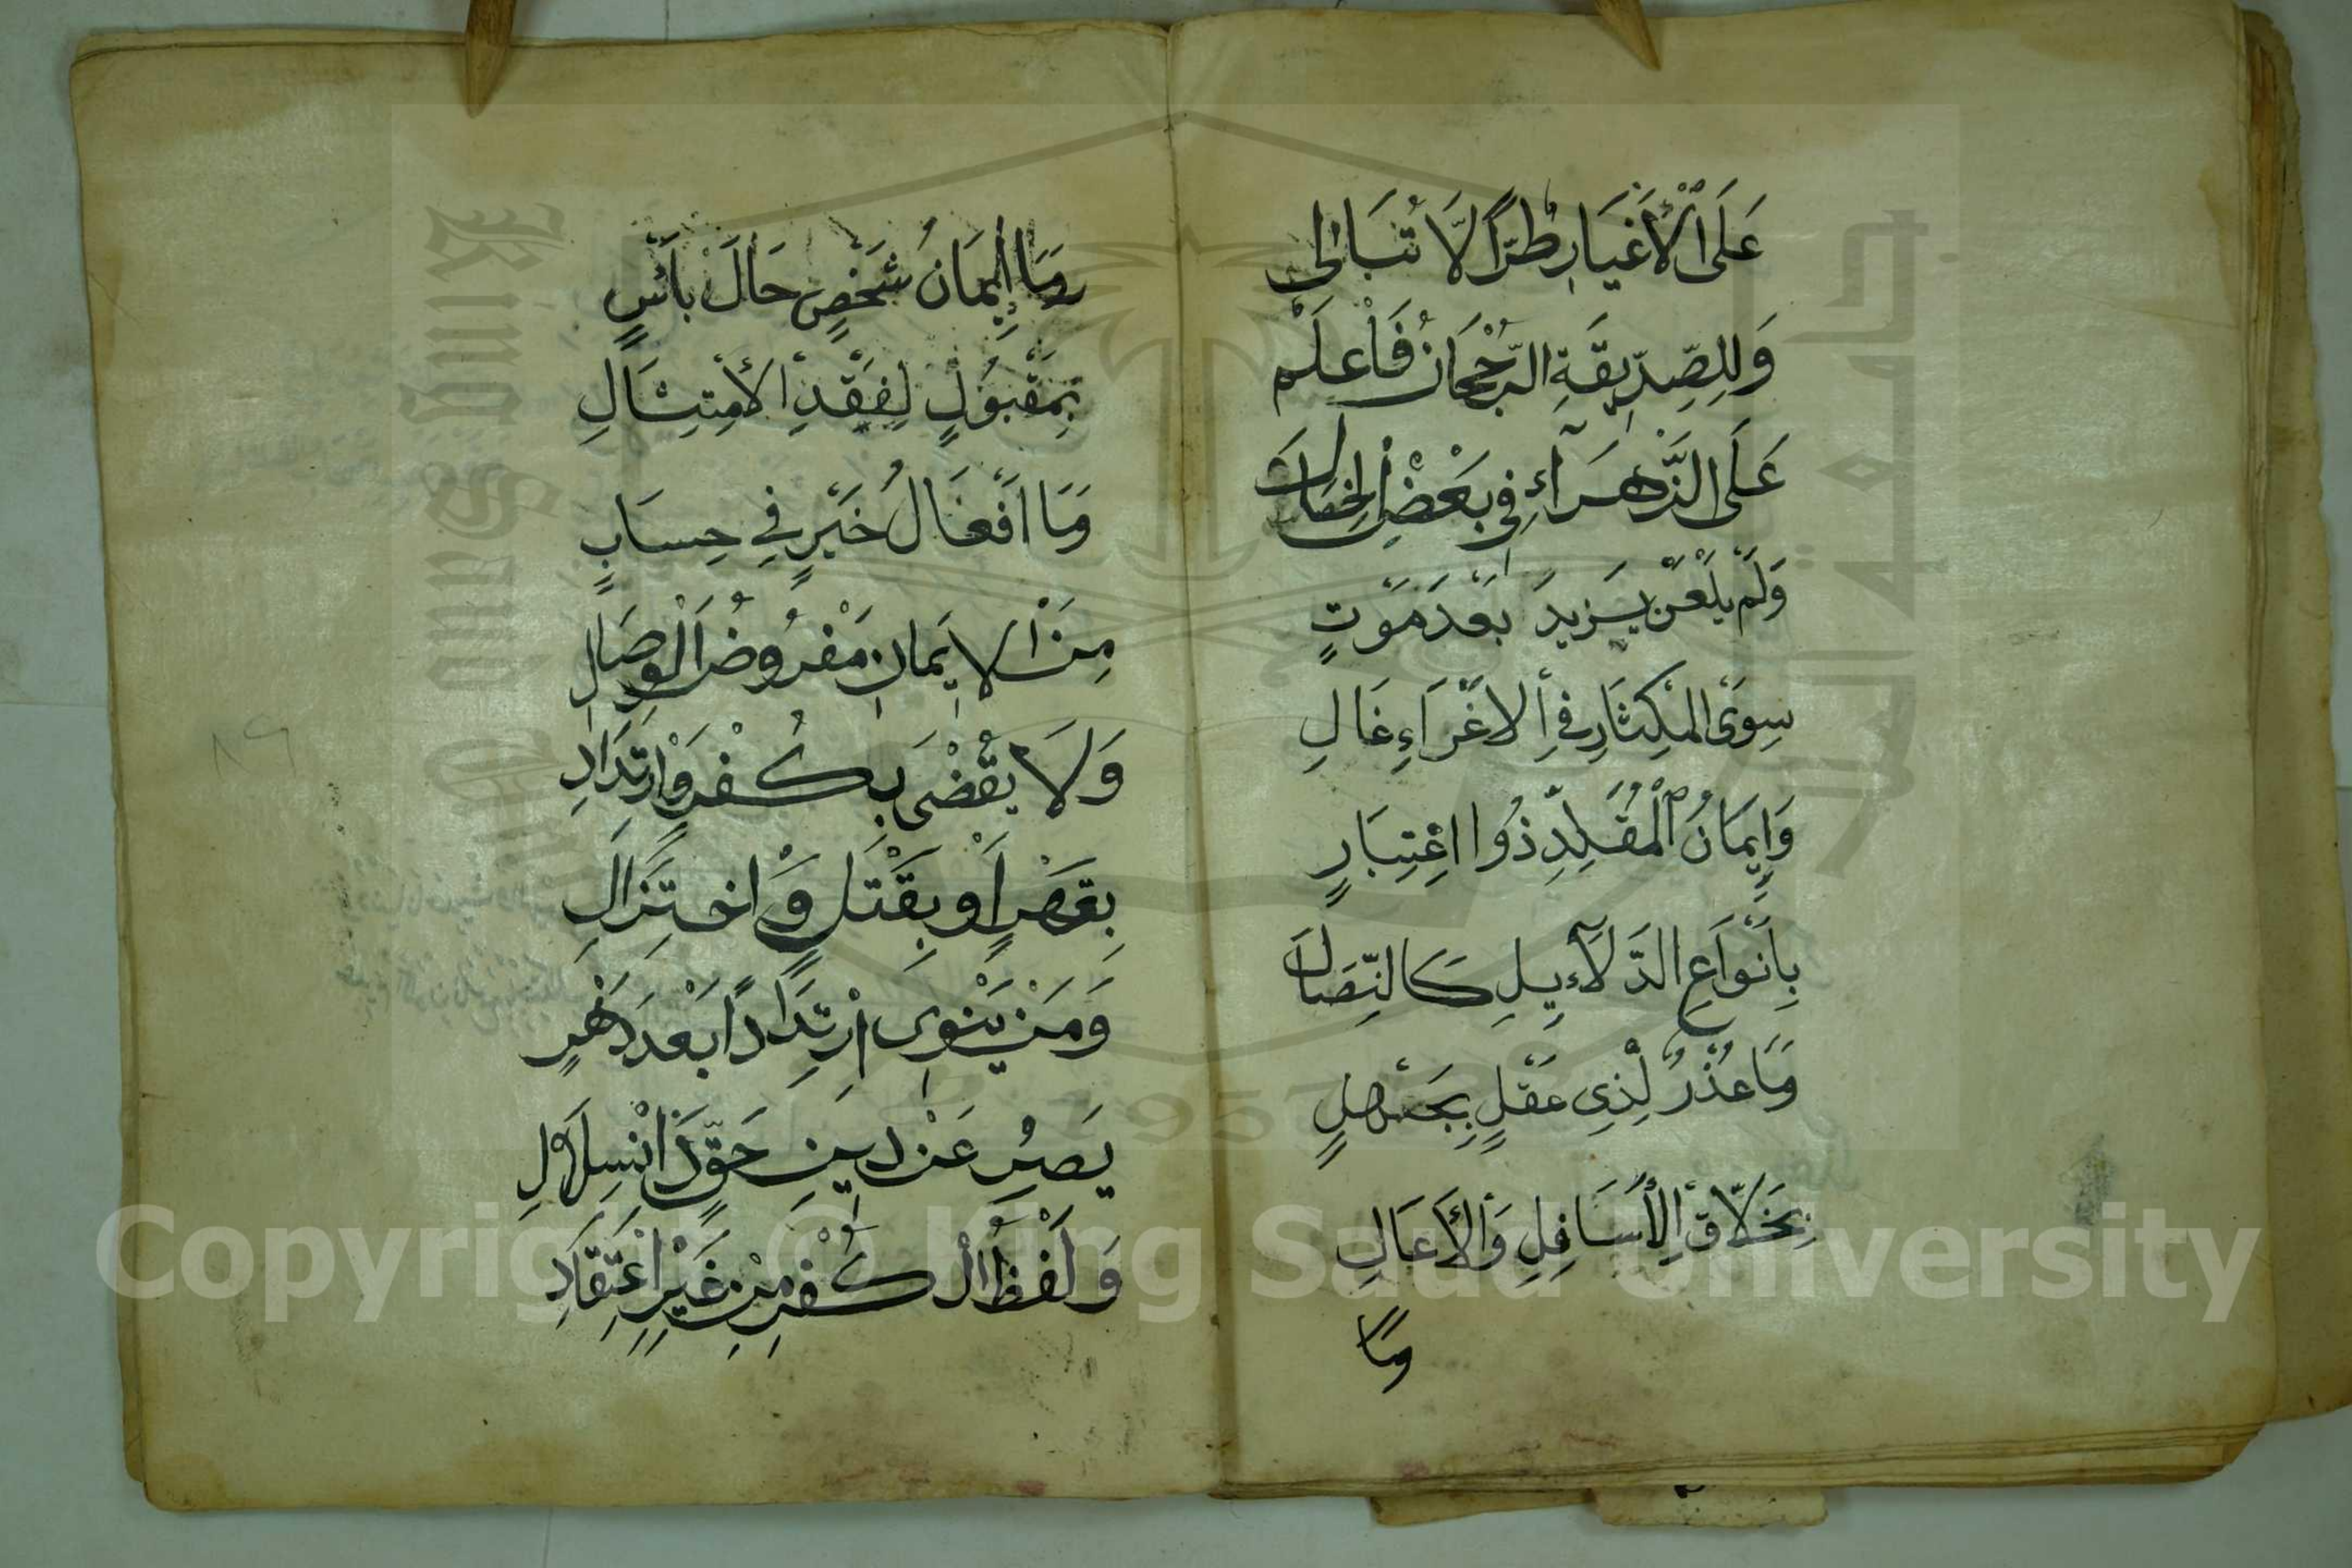 عَلَى الْأَغْيَارِ طُرًّا لَا تُبَالِي
وَلِلصِّدِّيقَةِ الرُّجْحَانُ فَاعْلَمْ
عَلَى الزَّهْرَآءِ فِي بَعْضِ الْخِصَالِ
وَلَمْ يَلْعَنْ يَزِيدَ بَعْدَ مَوْتٍ
سِوَى الْمِكْثَارِ فِي الْاِغْرَاءِ غَالِ
وَإِيمَانُ الْمُقَلِّدِ ذُوا اعْتِبَارٍ
بِاَنْوَاعِ الدَّلَآءِيلِ كَالنِّصَالِ
وَمَا عُذْرٌ لِذِي عَقْلٍ بِجَهْلٍ
بِخَلَّاقِ الْأَسَافِلِ وَالْأَعَالِ
وَمَا
وَمَا إِيمَانُ شَخْصٍ حَالَ بَأْسٍ
بِمَقْبُولٍ لِفَقْدِ الْأِمْتِثَالِ
وَمَا اَفْعَالُ خَيْرٍ فِي حِسَابٍ
مِنَ الْاِيمَانِ مَفْرُوضُ الْوِصَالِ
وَلَا يُقْضَى بِكُفْرٍ وَارْتِدَادِ
بِقَهْرٍ اَوْ بِقَتْلٍ وَاخْتِزَالِ
وَمَنْ يَنْوِى ارْتِدَادًا بَعْدَ دَهْرٍ
يَصِرُ عَنْ دِينِ حَقٍّ ذَا انْسِلَالِ
وَلَفْظُ الْكُفْرِ مِنْ غَيْرِ اعْتِقَادِ
٨٩
Copyright © King Saud University
King Saud University
1957